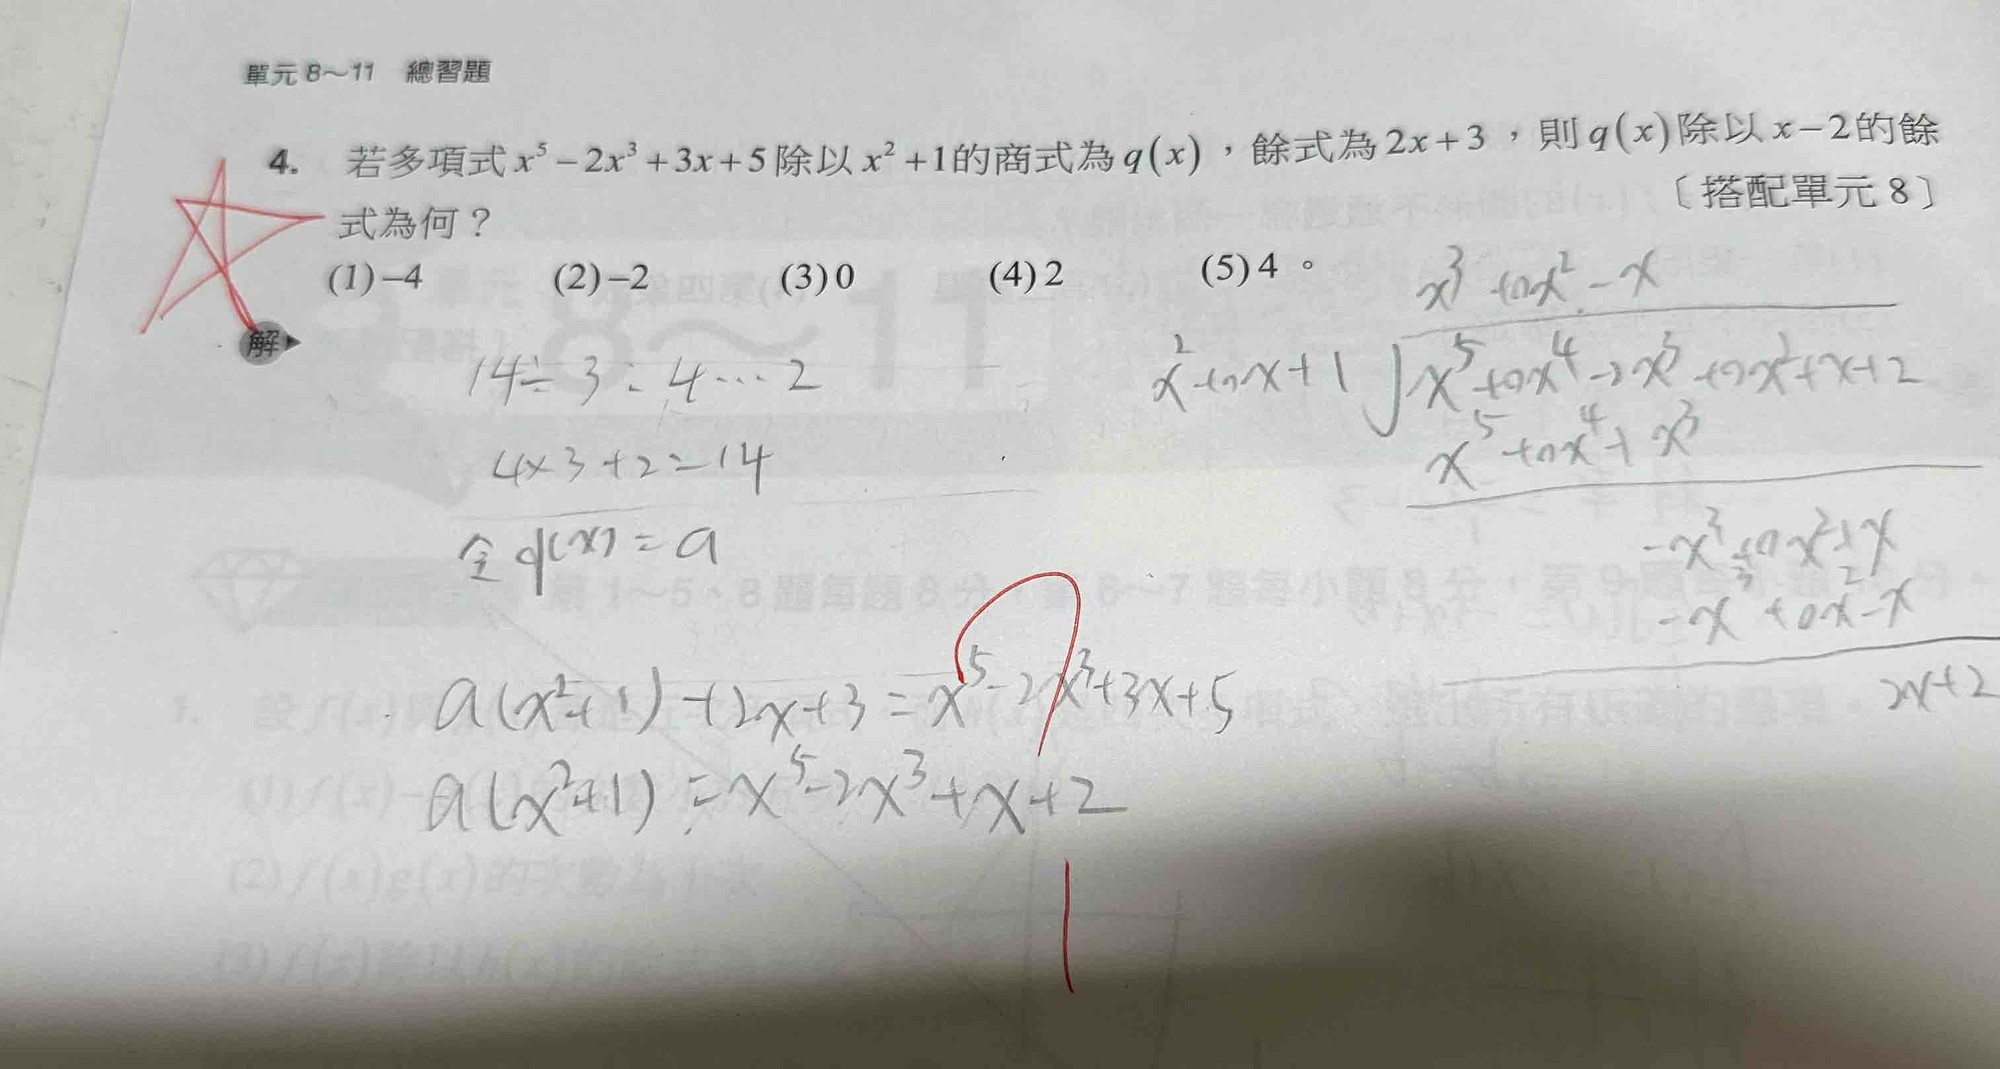 單元 8～11　總習題
4. 若多項式 x⁵－2x³＋3x＋5 除以 x²＋1的商式為 q(x)，餘式為 2x＋3，則 q(x) 除以 x－2的餘
式為何？〔搭配單元 8〕
(1)－4 (2)－2 (3) 0 (4) 2 (5) 4。
解
14÷3=4…2
4×3+2=14
令q(x)=a
a(x²+1)+2x+3=x⁵-2x³+3x+5
a(x²+1)=x⁵-2x³+x+2
x³+0x²-x
x²+0x+1 x⁵+0x⁴-2x³+0x²+x+2
x⁵+0x⁴+x³
-x³+0x²+x
-x³+0x²-x
2x+2